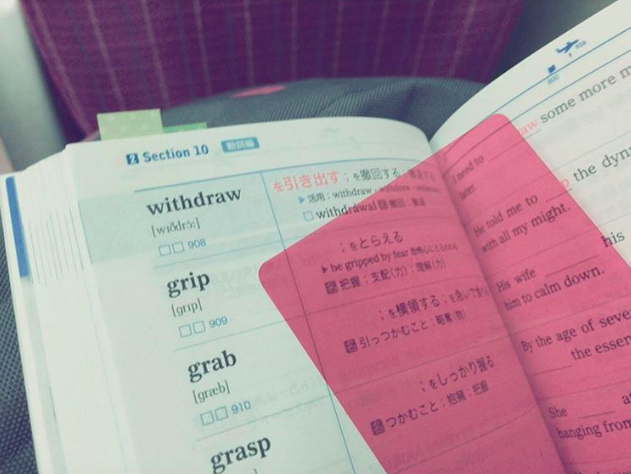 2 Section 10 動詞編
withdraw
[wɪðdrɔː]
908
を引き出す；を撤回する
▶活用：withdraw - withdrew -
withdrawal 名 撤回
grip
[grɪp]
909
；をとらえる
▶ be gripped by fear
名 把握；支配(力)；理解(力)
grab
[græb]
910
；を横領する；
名 引っつかむこと；略奪(物)
grasp
；をしっかり握る
名 つかむこと；抱擁；把握
some more
I need to
later.
the dyna
He told me to
with all my might.
his
His wife
him to calm down.
By the age of seve
the essen
She
hanging from